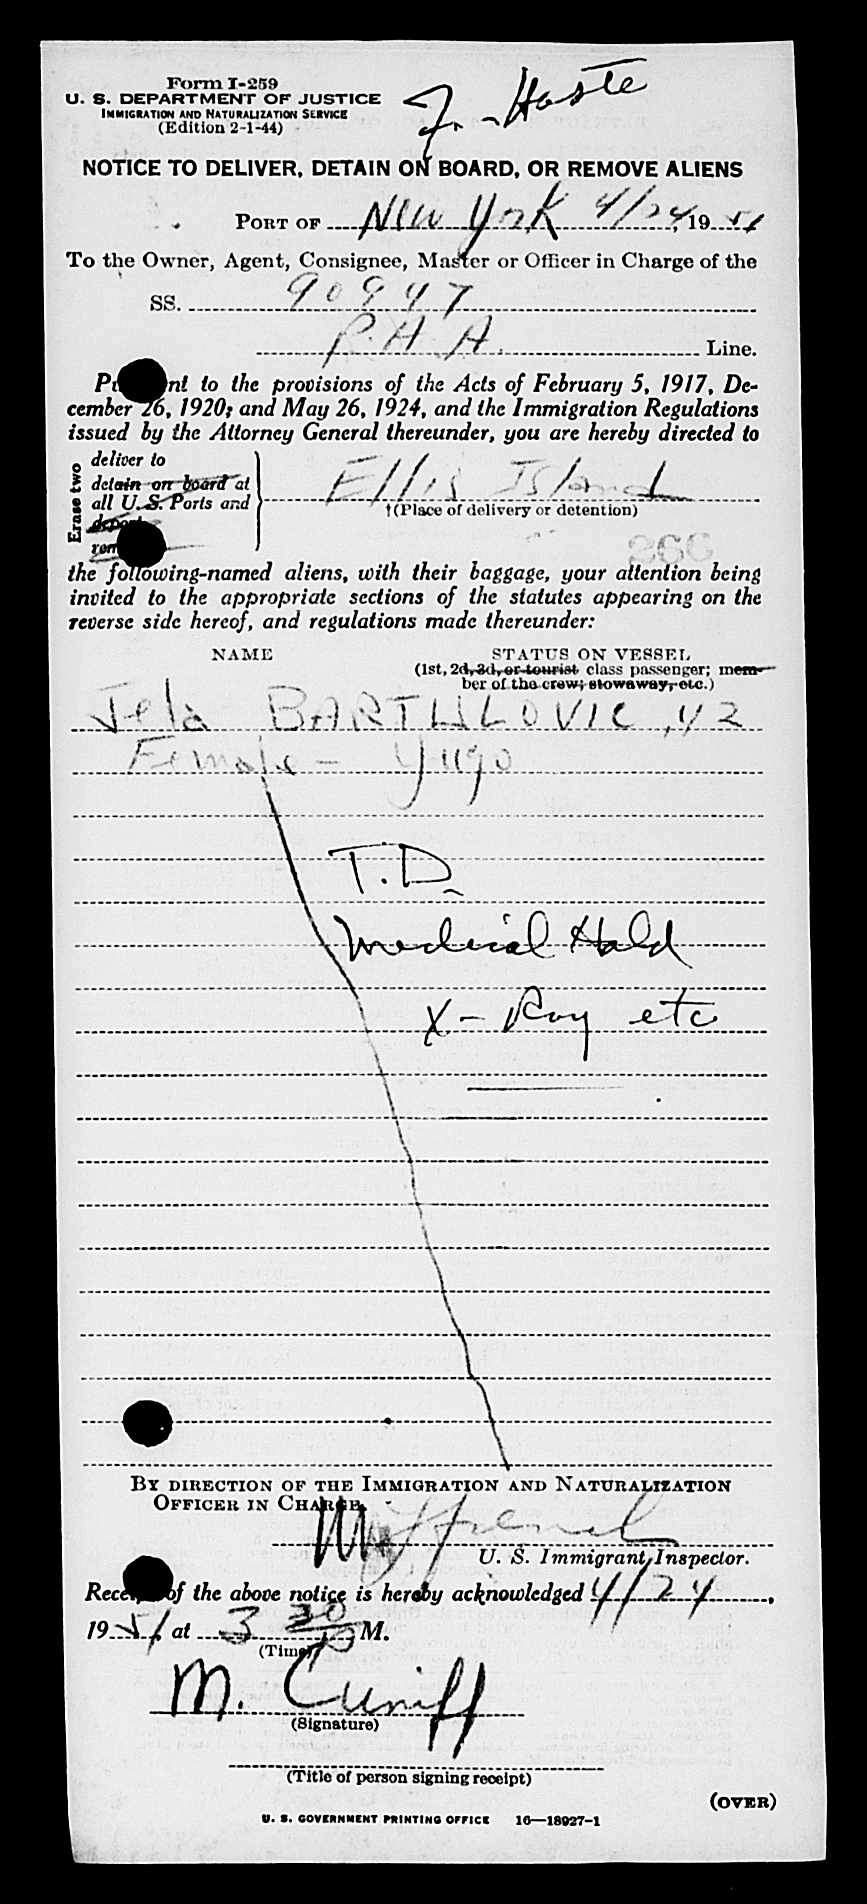 Form I-259
U. S. DEPARTMENT OF JUSTICE
IMMIGRATION AND NATURALIZATION SERVICE
(Edition 2-1-44)
J. - Haste
NOTICE TO DELIVER, DETAIN ON BOARD, OR REMOVE ALIENS
PORT OF New York 4/24, 1951
To the Owner, Agent, Consignee, Master or Officer in Charge of the
SS. 90947
P.A.A. Line.
Pu nt to the provisions of the Acts of February 5, 1917, De-
cember 26, 1920; and May 26, 1924, and the Immigration Regulations
issued by the Attorney General thereunder, you are hereby directed to
Erase two
deliver to
detain on board at
all U. S. Ports and
deport
rem
Ellis Island
†(Place of delivery or detention)
266
the following-named aliens, with their baggage, your attention being
invited to the appropriate sections of the statutes appearing on the
reverse side hereof, and regulations made thereunder:
NAME STATUS ON VESSEL
(1st, 2d, 3d, or tourist class passenger; mem-
ber of the crew; stowaway, etc.)
Jela BARTULOVIC, 42
Female - Yugo
T.D.
Medical Hold
X-Ray etc
BY DIRECTION OF THE IMMIGRATION AND NATURALIZATION
OFFICER IN CHARGE.
U. S. Immigrant Inspector.
Recei of the above notice is hereby acknowledged 4/24,
1951, at 3 30 P M.
(Time)
M. Cuniff
(Signature)
(Title of person signing receipt)
(OVER)
U. S. GOVERNMENT PRINTING OFFICE 16—18927-1